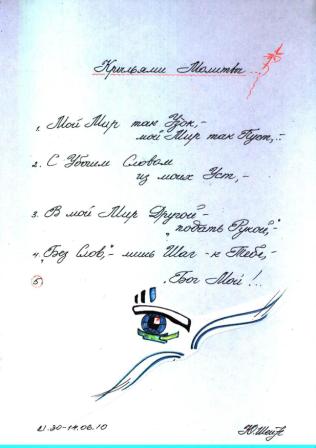 Крыльями Молитвы...
1. Мой Мир так Узок,-
мой Мир так Пуст,-
2. С Убогим Словом
из моих Уст,-
3. В мой Мир Другой"-
"подать Рукой,"-
4. "Без Слов,"- лишь Шаг - к Тебе,-
5 .Бог Мой!...
21.30-14.06.10